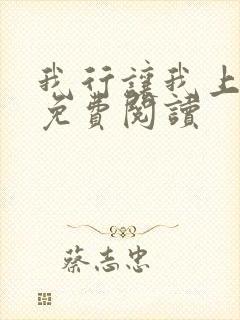 我行讓我上
免費閱讀
蔡志忠